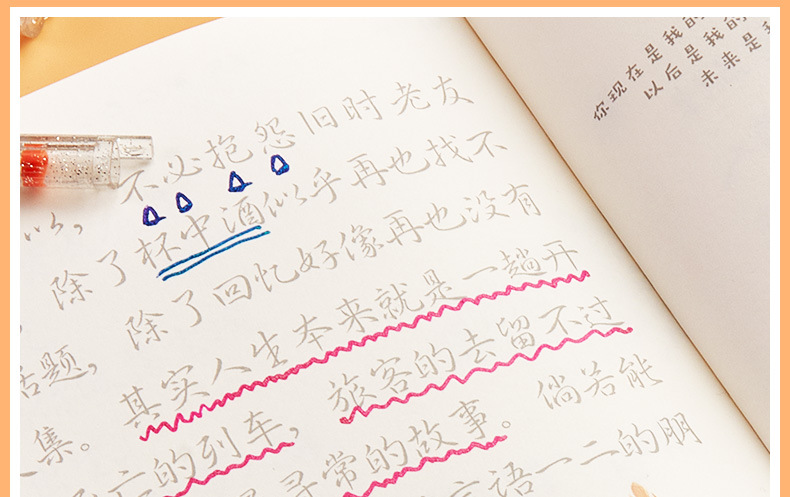 以,不必抱怨旧时老友
除了杯中酒似乎再也找不
话题,除了回忆好像再也没有
集。其实人生本来就是一趟开
亡的列车,旅客的去留不过
寻常的故事。倘若能
言语一二的朋
你现在是我的
以后是我的
未来是